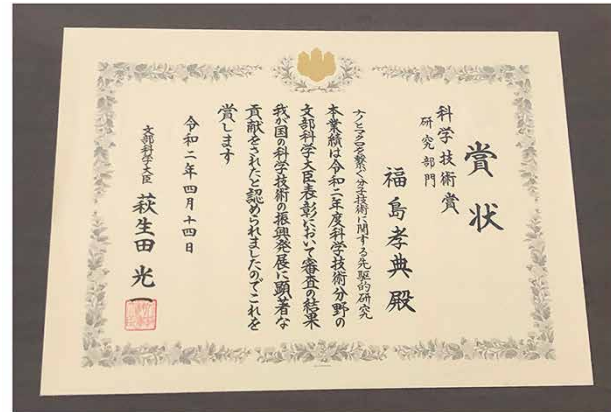 賞状
科学技術賞
研究部門
福島孝典殿
ナノとマクロを繋ぐ分子技術に関する先駆的研究
本業績は令和二年度科学技術分野の
文部科学大臣表彰において審査の結果
我が国の科学技術の振興発展に顕著な
貢献をされたと認められましたのでこれを
賞します
令和二年四月十四日
文部科学大臣 萩生田光一